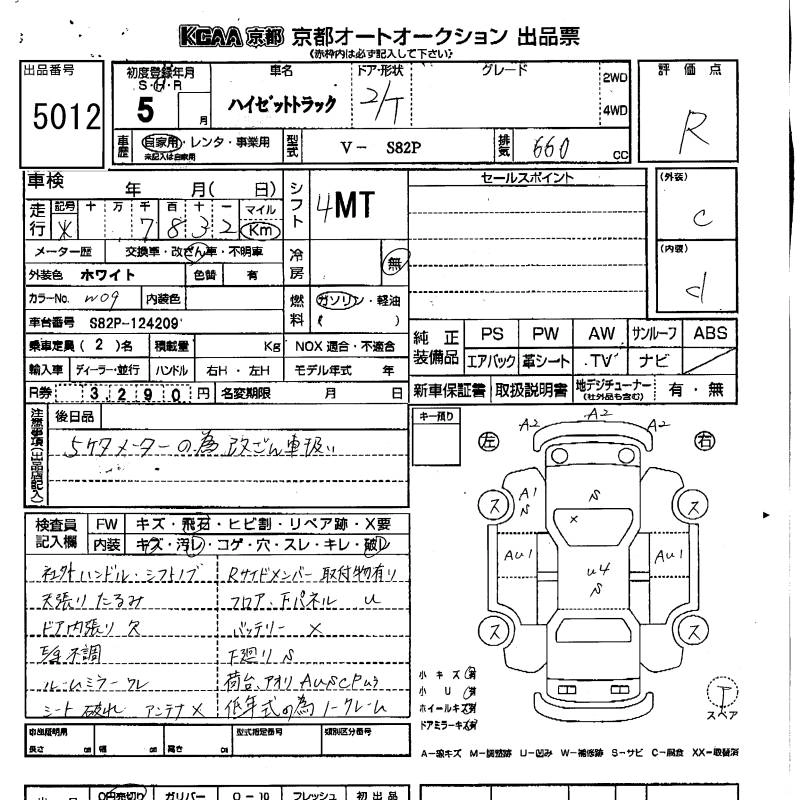 KCAA 京都 京都オートオークション 出品票
(赤枠内は必ず記入して下さい)
出品番号 5012
初度登録年月 S・H・R 5 月
車名 ハイゼットトラック
ドア・形状 2/T
グレード 2WD 4WD
評価点 R
車歴 自家用・レンタ・事業用 未記入は自家用
型式 V - S82P
排気 660 cc
車検 年 月( 日)
シフト 4MT
セールスポイント
(外装) C
(内装) d
走行 記号 十 万 千 百 十 一 マイル
※ 7 8 3 2 Km
メーター歴 交換車・改ざん車・不明車
冷房 無
外装色 ホワイト 色替 有
カラーNo. W09 内装色
燃料 ガソリン・軽油 ( )
車台番号 S82P-124209
乗車定員 (2)名 積載量 Kg NOX 適合・不適合
輸入車 ディーラー・並行 ハンドル 右H・左H モデル年式 年
R券 3,290円 名変期限 月 日
純正装備品 PS PW AW サンルーフ ABS
エアバック 革シート TV ナビ
新車保証書 取扱説明書 地デジチューナー (社外品も含む) 有・無
注意事項(出品店記入) 後日品
5ケタメーターの為改ざん車扱い
キー預り
左 右
A2 A2 A2
A1 S S ×
AU1 U4 S AU1
ス ス ス ス
検査員記入欄 FW キズ・飛石・ヒビ割・リペア跡・X要
内装 キズ・汚レ・コゲ・穴・スレ・キレ・破レ
社外ハンドル・シフトノブ Rサイドメンバー取付物有り
天張りたるみ フロア、下パネル U
ドア内張り欠 バッテリー ×
不調 下廻り S
ルームミラーワレ 荷台、アオリ AUSCPワ3
シート破れ アンテナ× 低年式の為ノークレーム
小キズ 有
小U 有
ホイールキズ 有
ドアミラーキズ 有
スペア
車庫証明用 長さ cm 幅 cm 高さ cm 型式指定番号 類別区分番号
A-線キズ M-調整跡 U-凹み W-補修跡 S-サビ C-腐食 XX-取替済
0円売切り ガリバー 0-10 フレッシュ 初出品